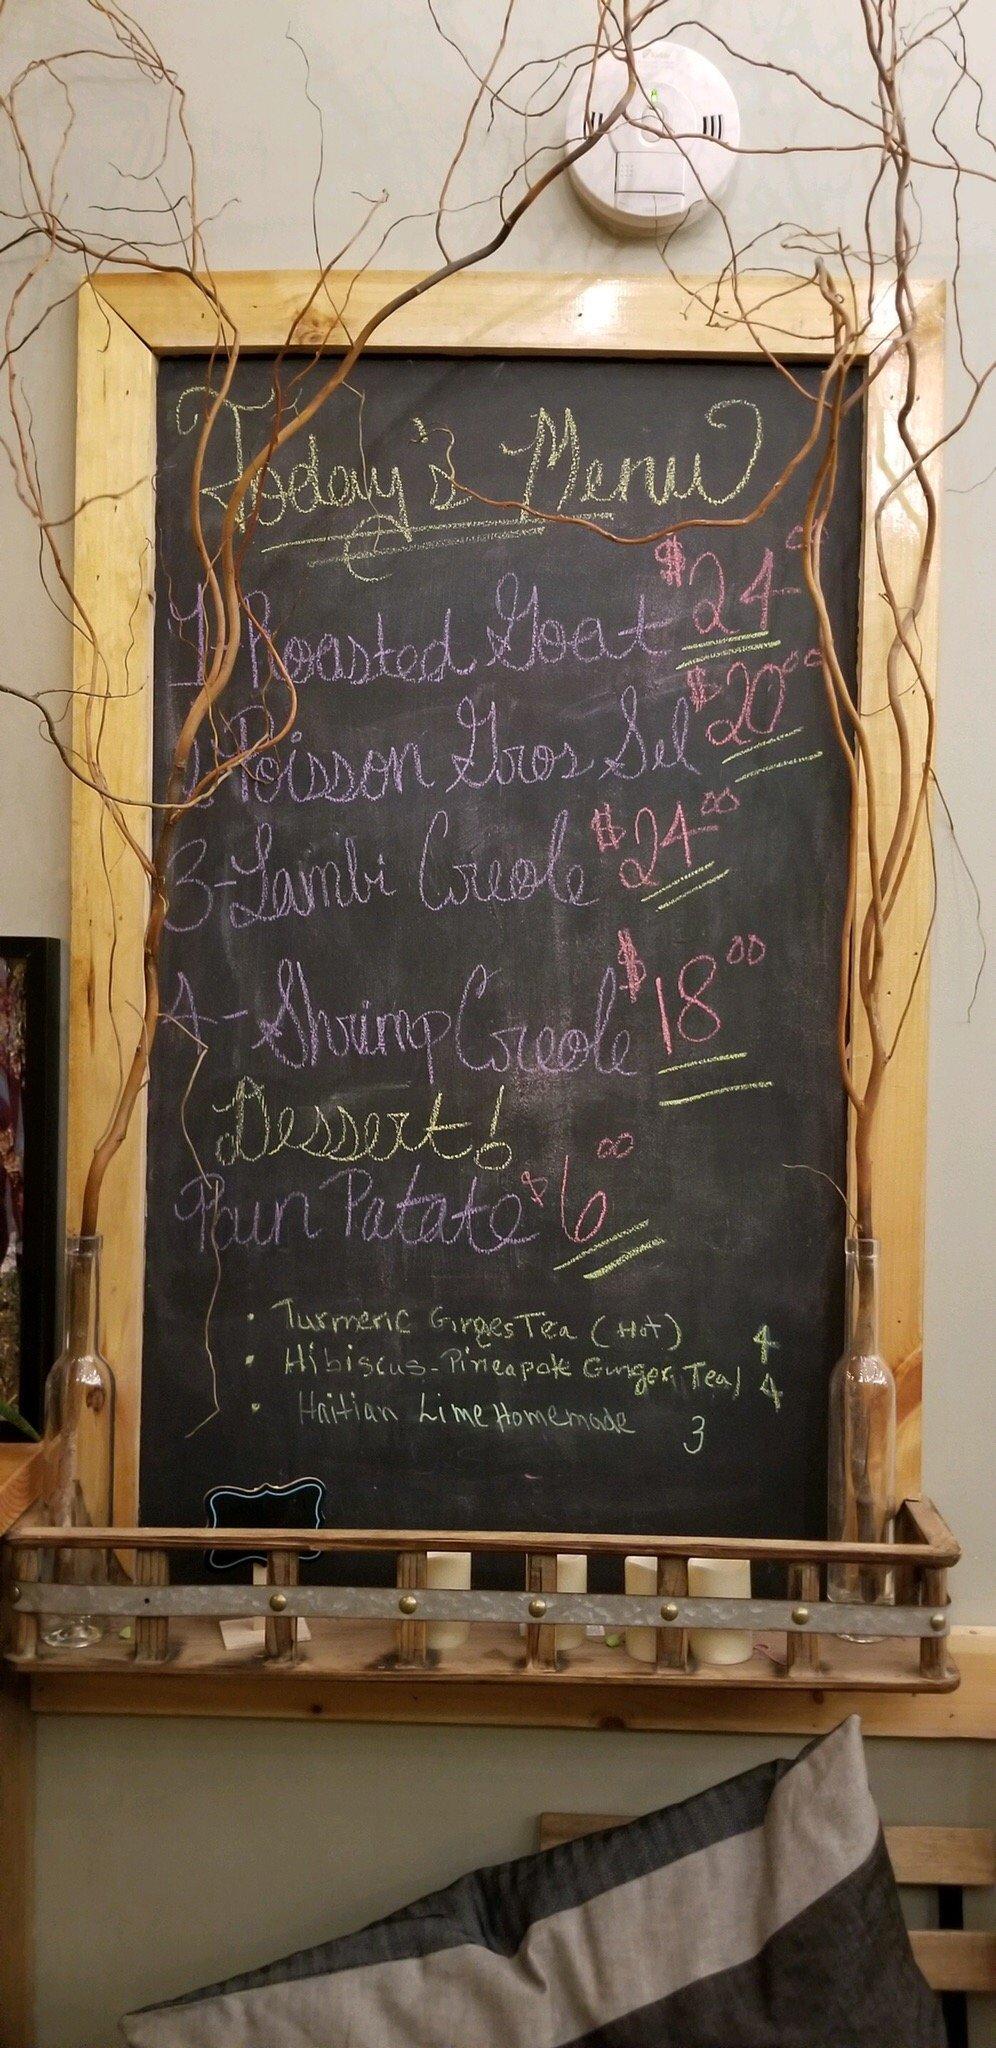 Today's Menu
1-Roasted Goat $24.00
Poisson Gros Sel $20.00
3-Lambi Creole $24.00
4-Shrimp Creole $18.00
Dessert!
Pain Patate $6.00
• Turmeric Ginger Tea (Hot) 4
• Hibiscus-Pineapple Ginger Tea/ 4
• Haitian Lime Homemade 3